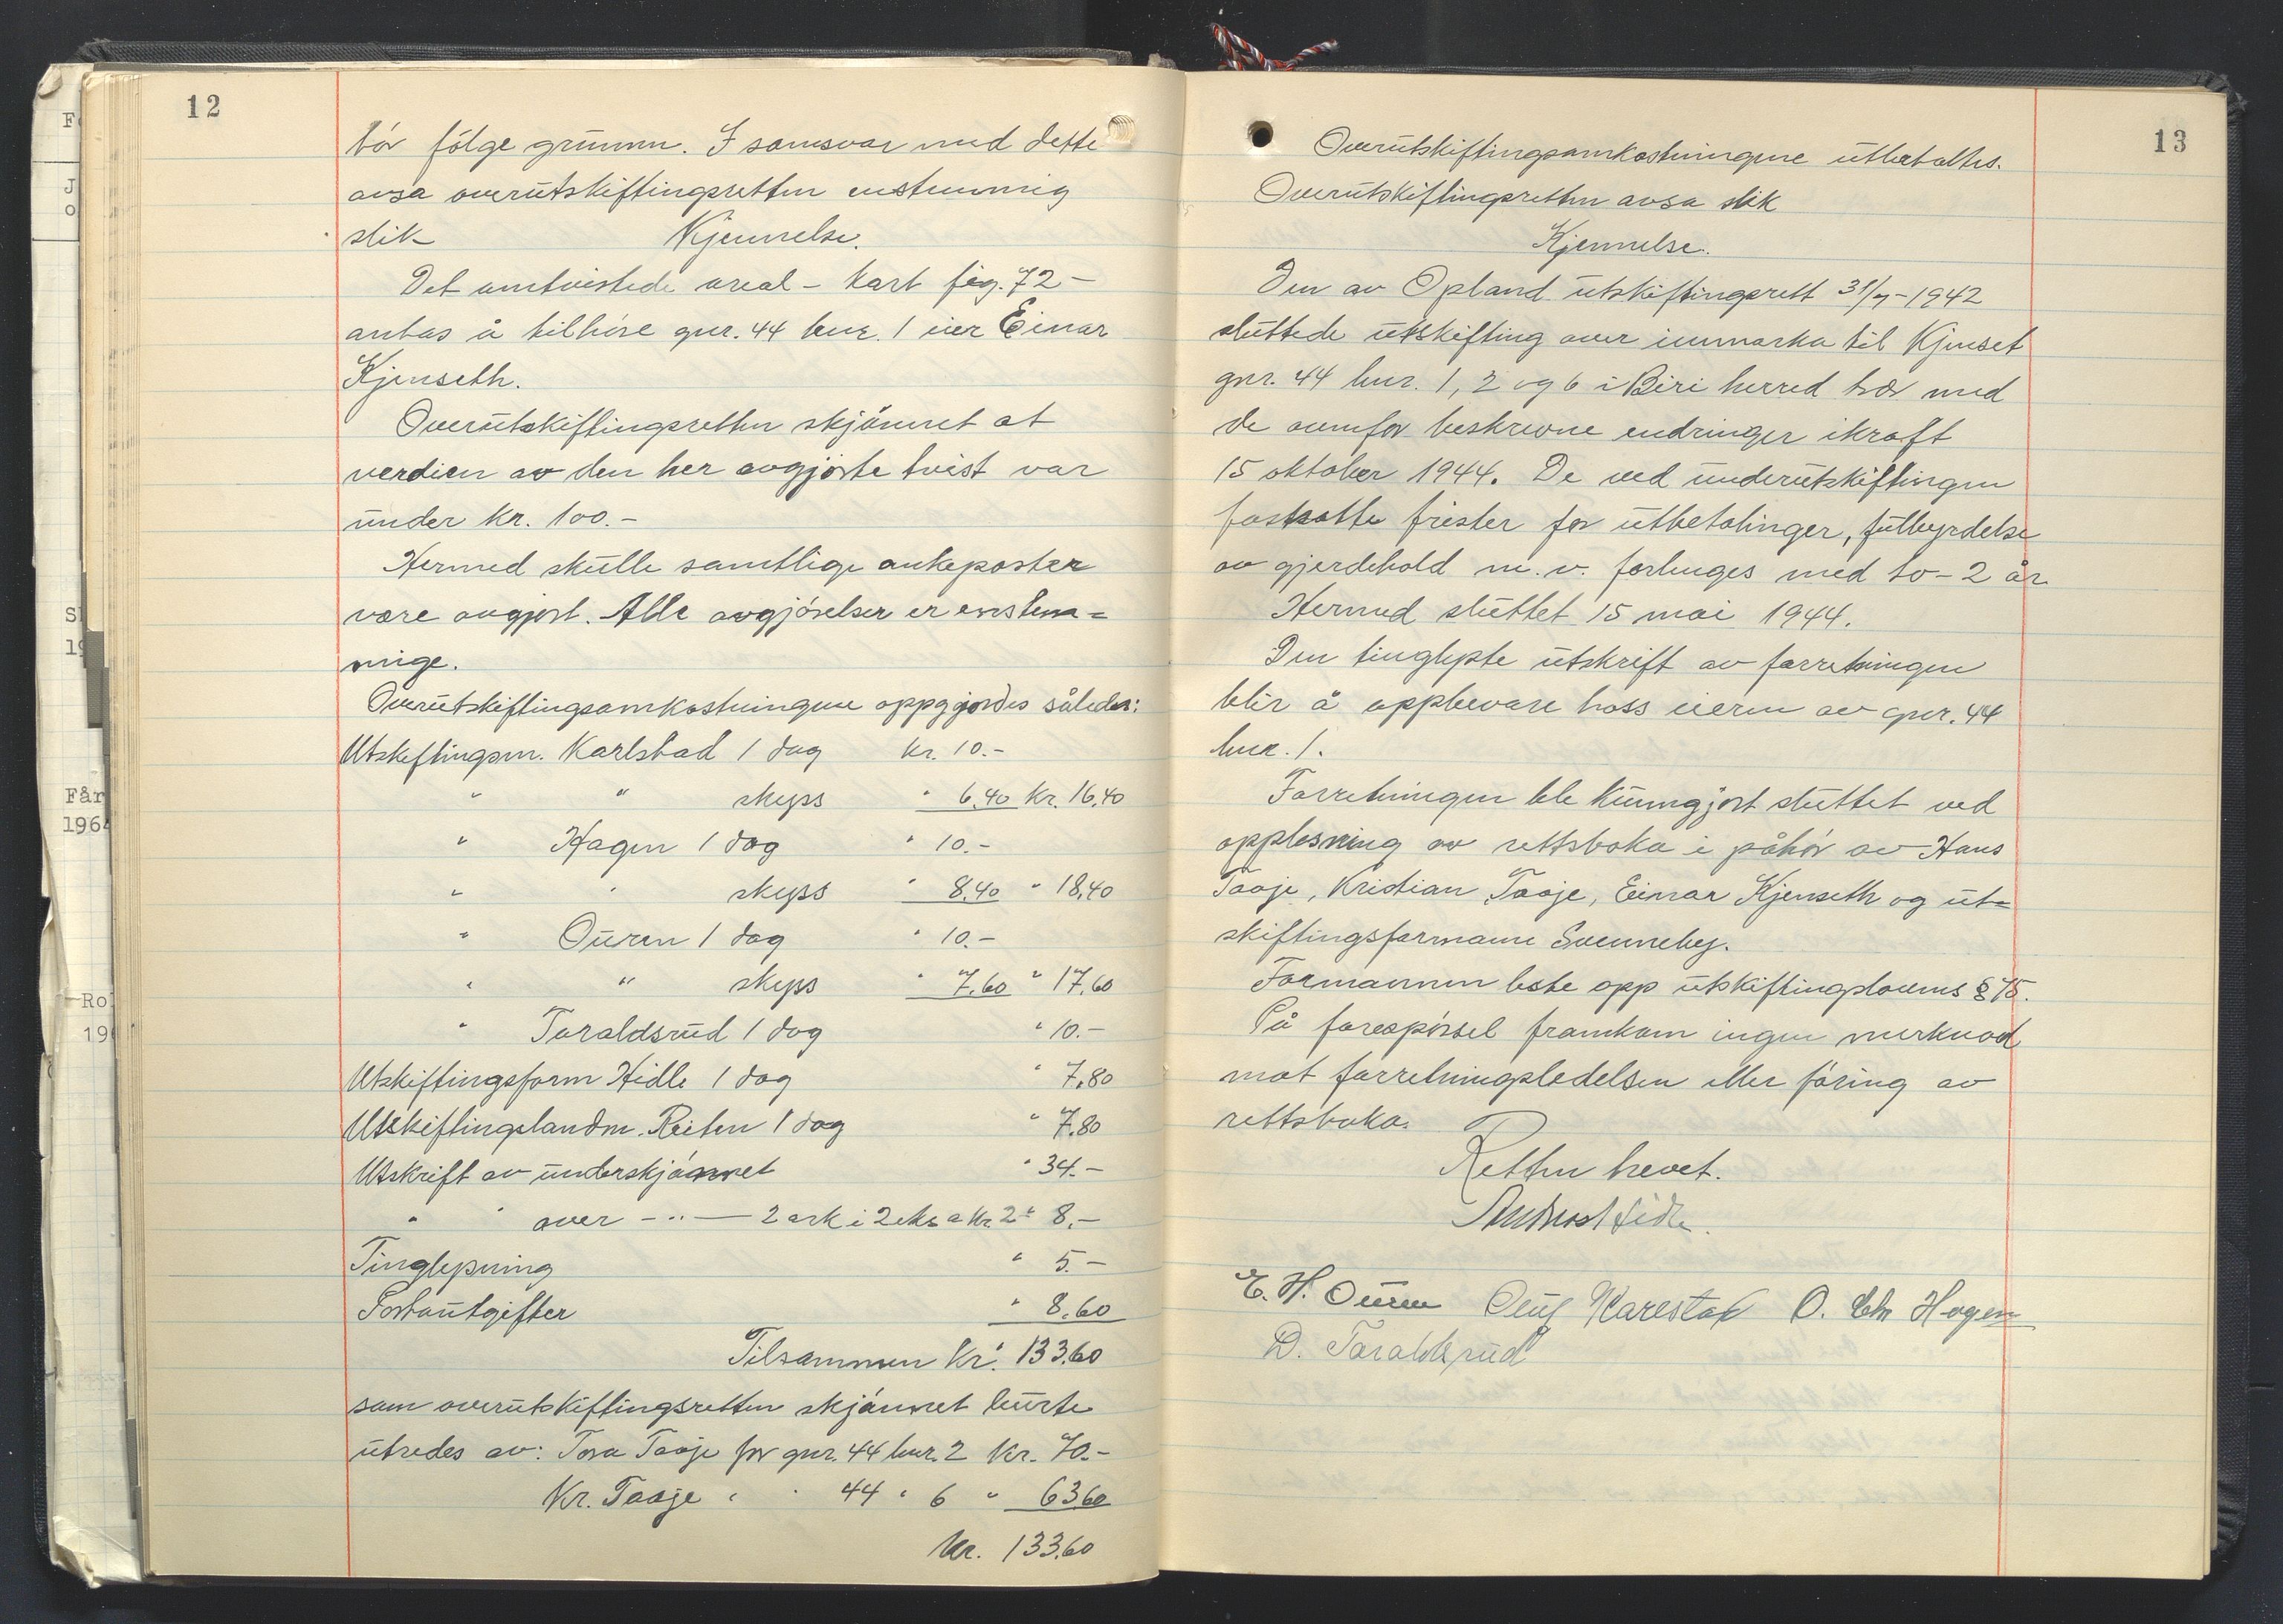 12
bør følge grunnen. I samsvar med dette
avsa overutskiftingsretten enstemmig
slik Kjennelse.
Det omtvistede areal – kart fig. 72 –
antas å tilhøre gnr. 44 bnr. 1 eier Einar
Kjenseth.
Overutskiftingsretten skjønnet at
verdien av den her avgjorte tvist var
under kr. 100.–
Hermed skulle samtlige ankeposter
være avgjort. Alle avgjørelser er enstem=
mige.
Overutskiftingsomkostningene oppgjordes således:
Utskiftingsm. Karlstad 1 dag kr. 10.–
" " skyss " 6,40 kr. 16,40
" Hagen 1 dag " 10.–
" " skyss " 8,40 " 18,40
" Ouren 1 dag " 10.–
" " skyss " 7,60 " 17,60
" Taraldsrud 1 dag " 10.–
Utskiftingsform Hidle 1 dag " 7,80
Utskiftingslandm. Reiten 1 dag " 7,80
Utskrift av underskjønnet " 34.–
" " over – " – 2 ark i 2 eks a kr. 2 " 8.–
Tinglysning " 5.–
Portoutgifter " 8.60
Tilsammen kr. 133.60
som overutskiftingsretten skjønnet burte
utredes av: Tora Taaje for gnr. 44 bnr. 2 kr. 70.–
Kr. Taaje " " 44 " 6 " 63.60
kr. 133.60
13
Overutskiftingsomkostningene utbetaltes.
Overutskiftingsretten avsa slik
Kjennelse.
Den av Opland utskiftingsrett 31/7–1942
sluttede utskifting over innmarka til Kjenset
gnr. 44 bnr. 1, 2 og 6 i Biri herred trær med
de ovenfor beskrevne endringer ikraft
15 oktober 1944. De ved underutskiftingen
fastsatte frister for utbetalinger, fullbyrdelse
av gjerdehold m. v. forlenges med to – 2 år
Hermed sluttet 15 mai 1944.
Den tinglyste utskrift av forretningen
blir å oppbevare hoss eieren av gnr. 44
bnr. 1.
Forretningen ble kunngjort sluttet ved
opplesning av rettsboka i påhør av Hans
Taaje, Kristian Taaje, Einar Kjenseth og ut=
skiftingsformann Svenneby.
Formannen leste opp utskiftingslovens § 75.
På forespørsel framkom ingen merknad
mot forretningsledelsen eller føring av
rettsboka.
Retten hevet.
E. H. Ouren Oluf Karlstad O. Chr Hagen
D. Taraldsrud
Får
1964
Ro
19